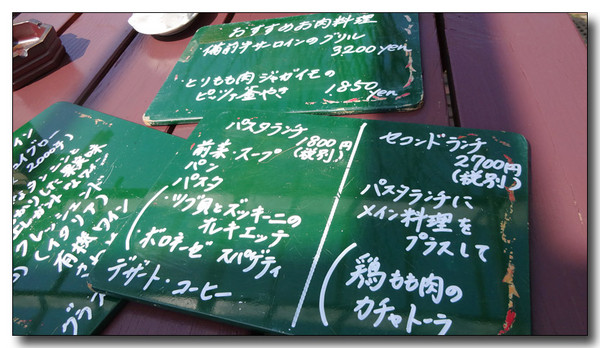 おすすめお肉料理
備前牛サーロインのグリル
3200 yen
・とりもも肉 ジャガイモの
ピッツァ釜やき 1850 yen
パスタランチ
1800円
(税別)
前菜・スープ
パン
パスタ
・ツブ貝とズッキーニの
オレキエッテ
ボロネーゼ スパゲティ
デザート・コーヒー
セコンドランチ
2700円
(税別)
パスタランチに
メイン料理を
プラスして
鶏もも肉の
カチャトーラ
フレッシュ
(イタリア)
有機ワイン
グラ